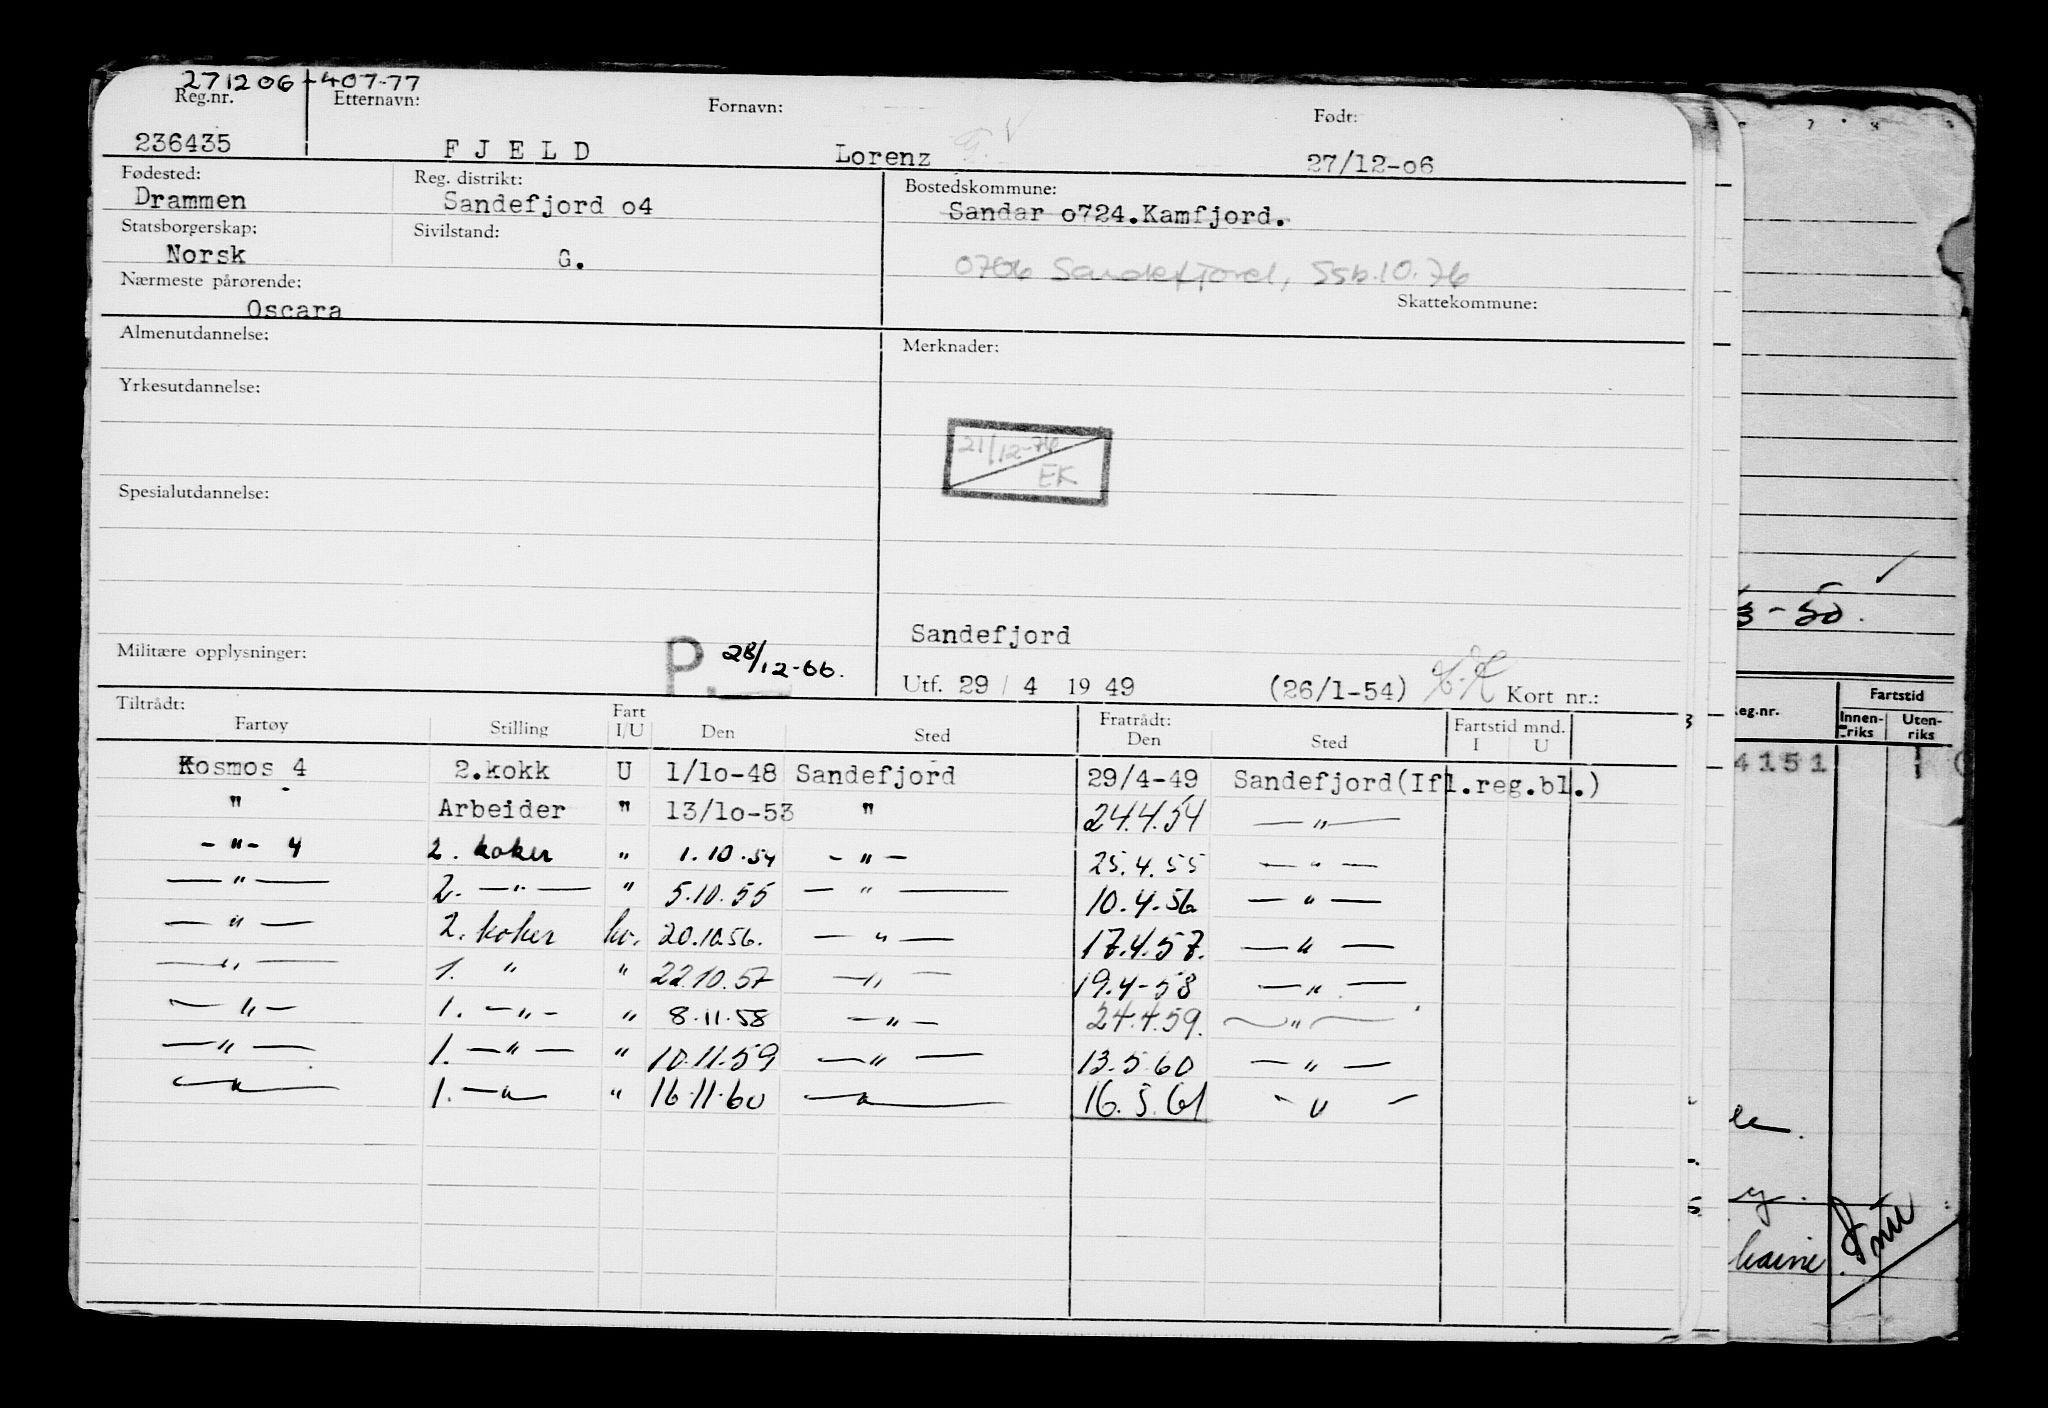 271206-407-77
Reg.nr. Etternavn: Fornavn: Født:
236435 FJELD Lorenz 27/12-o6
Fødested: Reg. distrikt: Bostedskommune:
Drammen Sandefjord o4 Sandar o724.Kamfjord.
Statsborgerskap: Sivilstand:
Norsk G. 0706 Sandefjord, Ssb.10.76
Nærmeste pårørende: Skattekommune:
Oscara
Almenutdannelse: Merknader:
Yrkesutdannelse:
21/12-76
EK
Spesialutdannelse:
3-50.
Sandefjord
Militære opplysninger: P. 28/12-66.
Utf. 29 / 4 19 49 (26/1-54) Kort nr.:
Tiltrådt: Fartøy Stilling Fart I/U Den Sted Fratrådt: Den Sted Fartstid mnd. I U
eg.nr. Fartstid Innen-riks Uten-riks
Kosmos 4 2.kokk U 1/1o-48 Sandefjord 29/4-49 Sandefjord(Ifl.reg.bl.)
4151
" Arbeider " 13/1o-53 " 24.4.54 — " —
- " - 4 2. koker " 1.10.54 - " - 25.4.55 — " —
— " — 2. — " — " 5.10.55 — " — 10.4.56 — " —
— " — 2. koker ko. 20.10.56. — " — 17.4.57. — " —
— " — 1. " " 22.10.57 — " — 19.4-58 — " —
— " — 1. — " — " 8.11.58 — " — 24.4.59. — " —
— " — 1. — " — " 10.11.59 — " — 13.5.60 — " —
— " — 1. — " — " 16.11.60 — " — 16.5.61 - " -